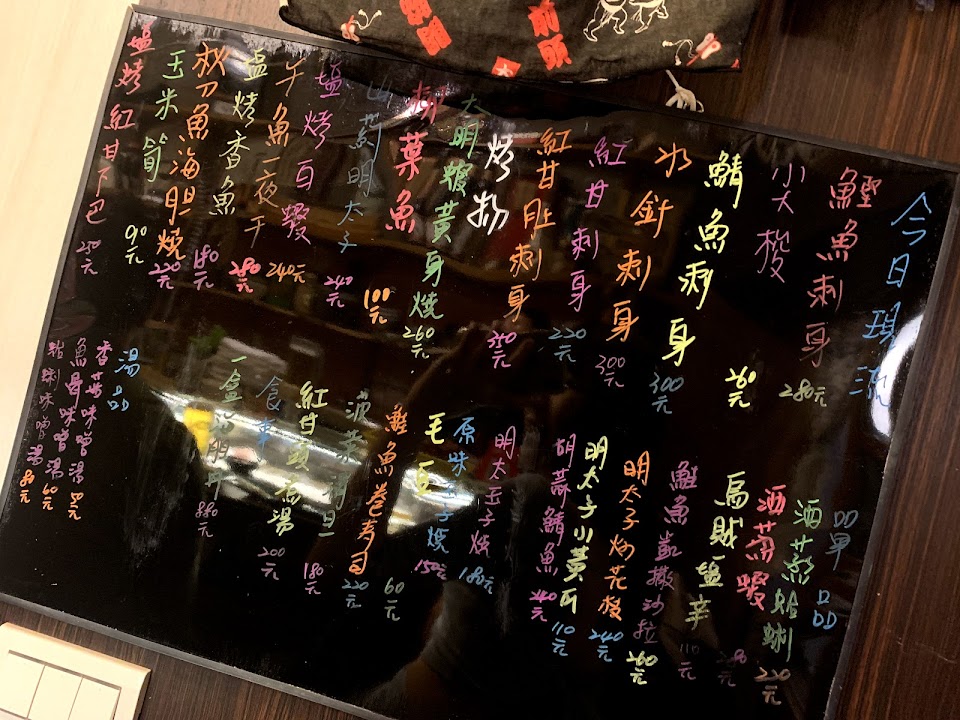 今日現流
鰹魚刺身 280元
尖梭
鯖魚刺身 260元
水針刺身 300元
紅甘刺身 300元
紅甘肚刺身 220元
烤物 350元
大明蝦黃身燒 260元
柳葉魚 100元
明太子 240元
塩烤白蝦 240元
午魚一夜干 280元
塩烤香魚 180元
秋刀魚海胆燒 220元
玉米筍 90元
塩烤紅甘下巴 250元
單品
酒蒸蛤蜊 220元
酒蒸蝦
烏賊塩辛 110元
鮭魚凱撒沙拉 260元
明太子炒花枝 240元
明太子小黃瓜 110元
胡麻鯖魚 240元
明太玉子燒 180元
原味玉子燒 150元
毛豆 60元
鮭魚卷壽司 220元
菠菜 180元
紅甘頭 湯 200元
食事
一盒 880元
湯品
香菇味噌湯
魚骨味噌湯 60元
蛤蜊味噌湯 80元